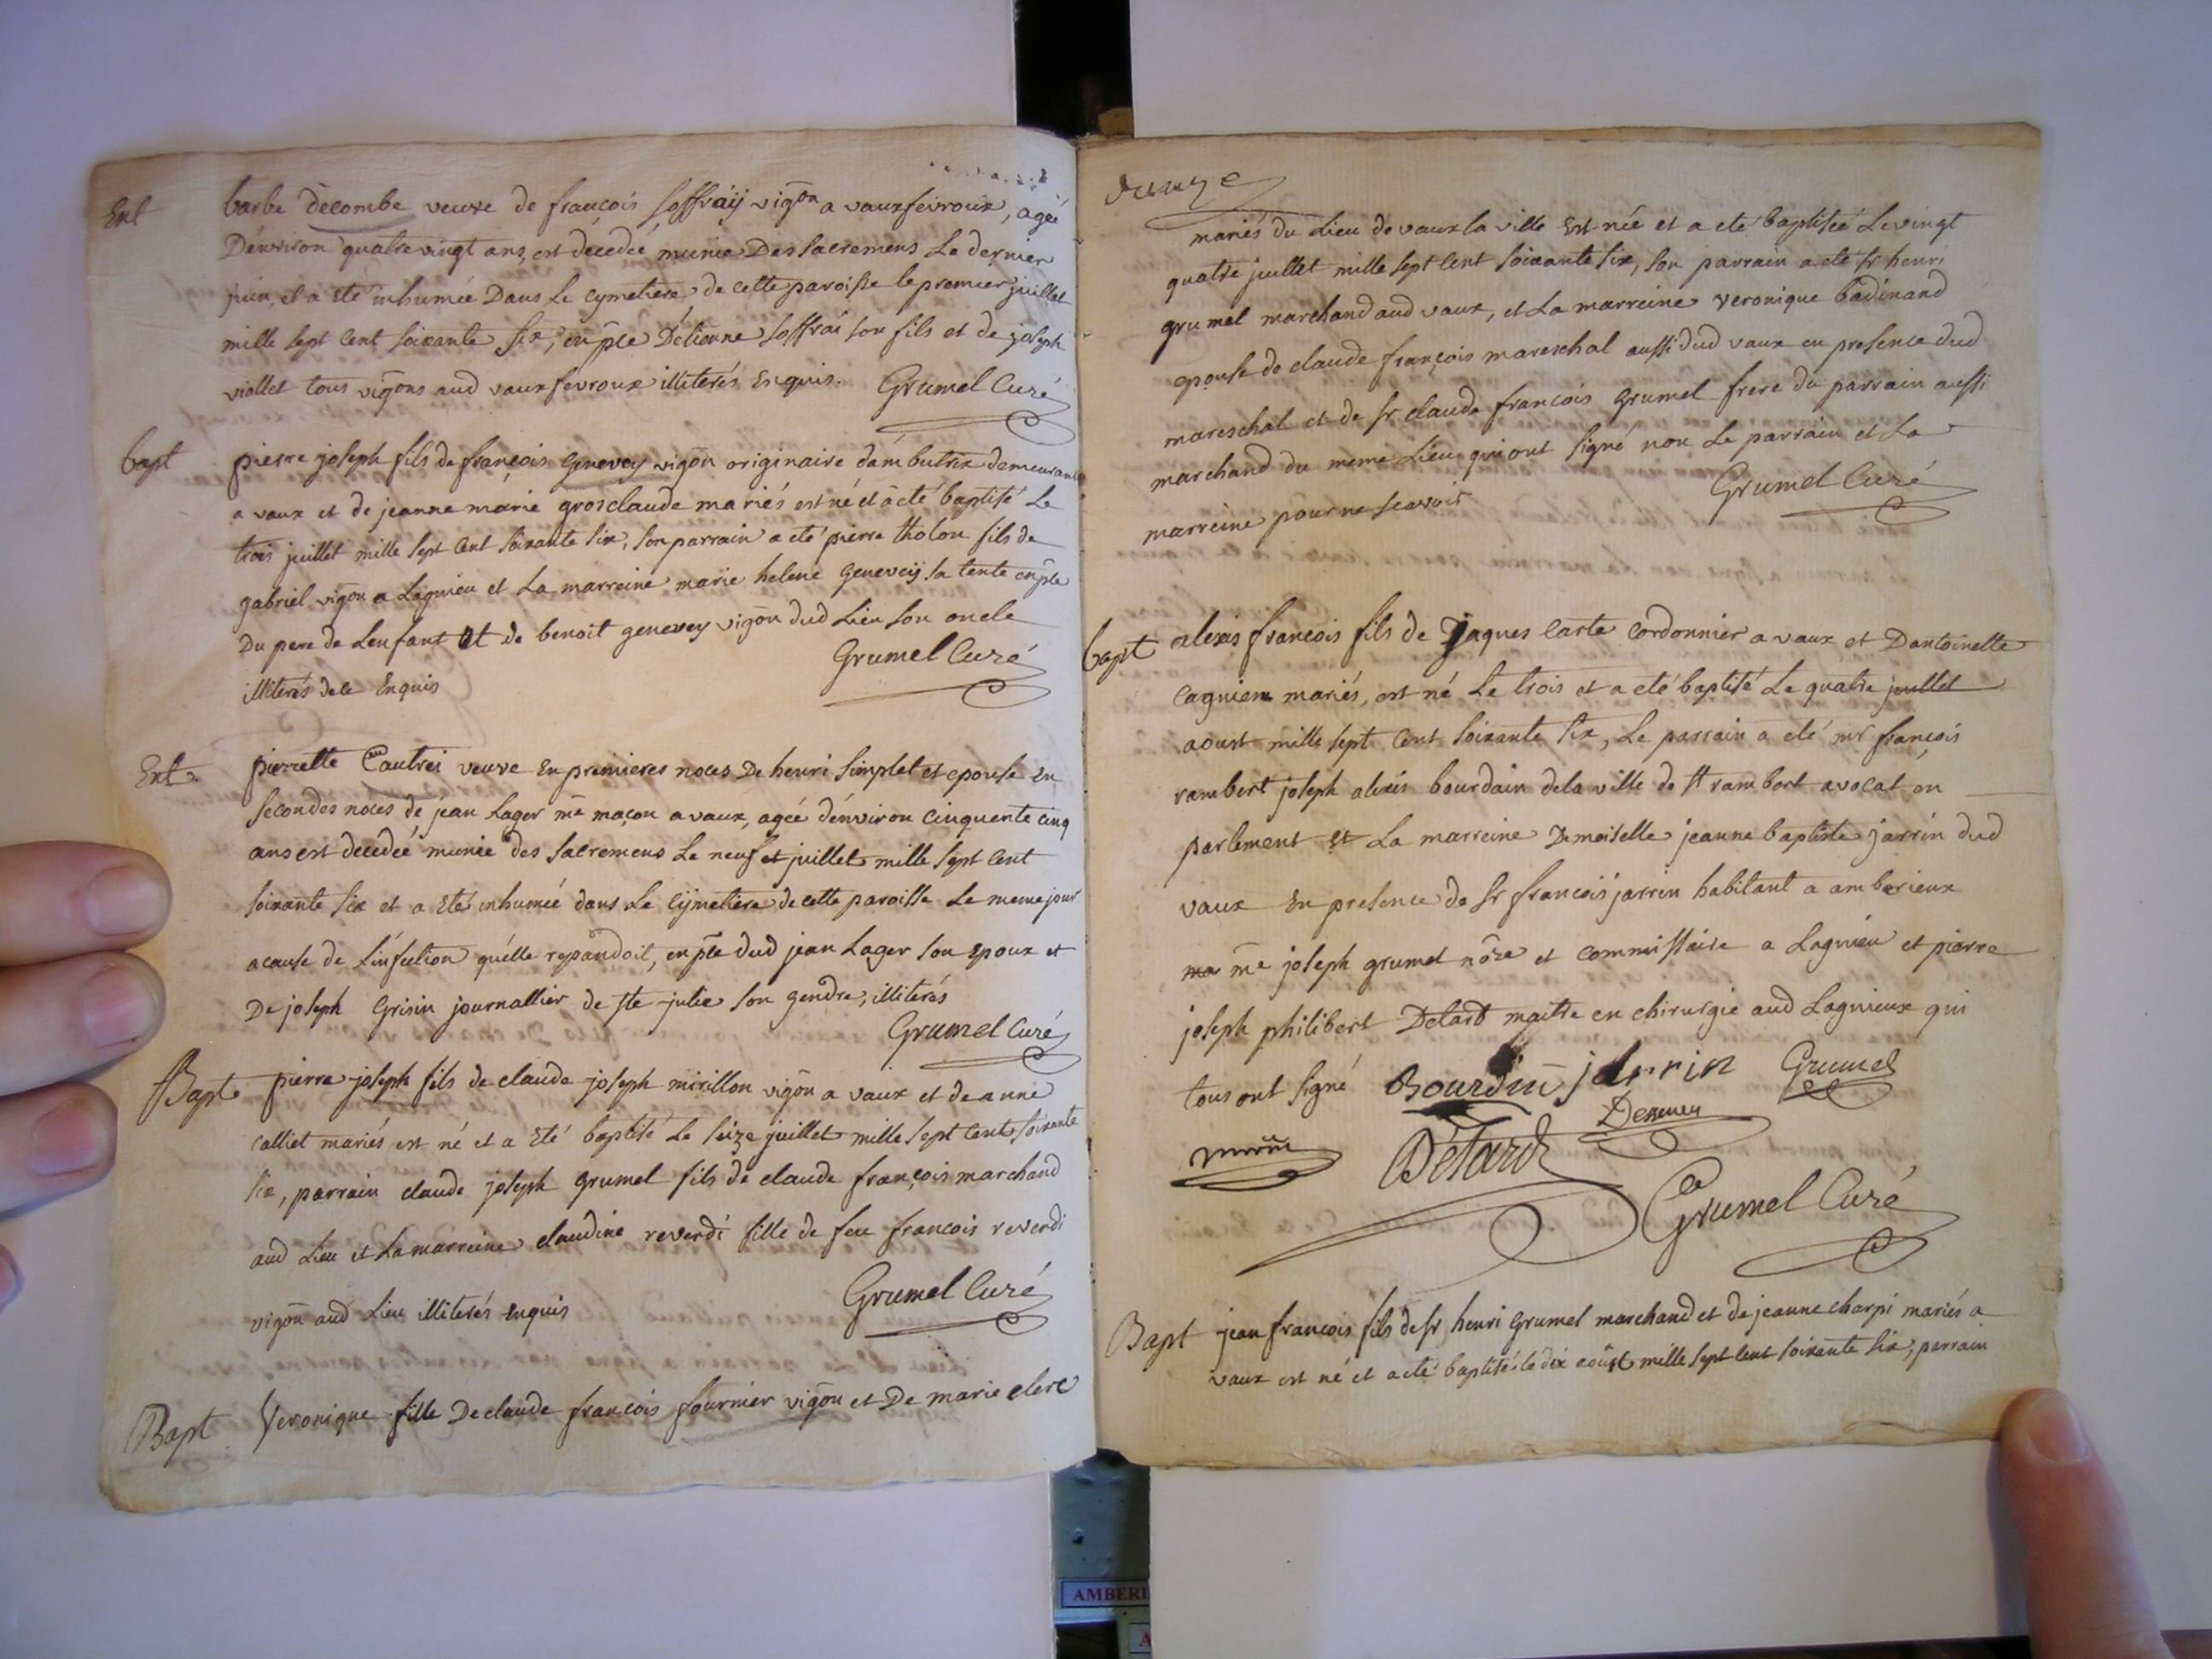 Ent
barbe decombe veuve de francois soffraÿ vigon a vauxfevroux, agée
D'environ quatre vingt ans, est décédée munie Des sacremens le dernier
juin, et a eté inhumée Dans le cymetiere de cette paroisse le premier juillet
mille sept cent soixante six, en pce D'etienne soffrai son fils et de joseph
viollet tous vigons aud vauxfevroux illiterés Enquis. Grumel Curé
bapt
pierre joseph fils de françois Genevey vigon originaire d'ambutrix demeurant
a vaux et de jeanne marie grosclaude mariés est né et a eté baptisé Le
trois juillet mille sept cent soixante six, son parrain a eté pierre tholon fils de
gabriel vigon a Lagnieu et La marreine marie helene Geneveÿ sa tente en pce
Du pere de Lenfant et de benoit genevey vigon dud Lieu son oncle
illiterés de ce Enquis Grumel Curé
Ent
pierrette Cautrei veuve En premieres noces De henri simplet et epouse En
secondes noces de jean Lager me maçon a vaux, agée d'environ cinquente cinq
ans est decedée munie des sacremens Le neuf et juillet mille sept cent
soixante six et a Eté inhumée dans Le cÿmetiere de cette paroisse Le meme jour
acause de L'infection qu'elle repandoit, en pce dud jean Lager son epoux et
De joseph Grisin journallier de ste julie son gendre, illiterés
Grumel Curé
Bapt
pierre joseph fils de claude joseph mirillon vigon a vaux et de anne
calliet mariés est né et a Eté baptisé Le seize juillet mille sept cent soixante
six, parrain claude joseph grumel fils de claude françois marchand
aud Lieu et La marreine claudine reverdi fille de feu francois reverdi
vigon aud Lieu illiterés enquis Grumel Curé
Bapt
Veronique fille De claude francois fournier vigon et De marie clerc
mariés du Lieu de vaux la ville Est née et a eté baptisée Le vingt
quatre juillet mille sept cent soixante six, son parrain a eté sr henri
grumel marchand aud vaux, et La marreine veronique badinand
epouse de claude françois mareschal aussi dud vaux en presence dud
mareschal et de sr claude francois Grumel frere du parrain aussi
marchand du meme Lieu qui ont signé non Le parrain et La
marreine pour ne scavoir Grumel Curé
bapt
alexis francois fils de Jaques Carte Cordonnier a vaux et D'antoinette
Cagnien mariés, est né Le trois et a eté baptisé Le quatre juillet
aoust mille sept cent soixante six, Le parrain a eté mr françois
rambert joseph alexis bourdain de la ville de st rambert avocat en
parlement et La marreine Demoiselle jeanne baptiste jarrin dud
vaux En presence de sr francois jarrin habitant a amberieux
me joseph grumet nore et commissaire a Lagnieu et pierre
joseph philibert Detard maitre en chirurgie aud Lagnieux qui
tous ont signé Bourdin jarrin Grumel
Détard
Grumel Curé
Bapt
jean francois fils de sr henri Grumel marchand et de jeanne charpi mariés a
vaux est né et a eté baptisé le dix août mille sept cent soixante six, parrain
AMBERI